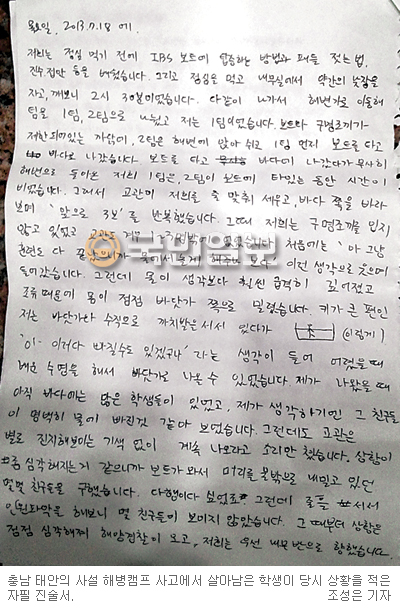 목요일, 2013.7.18 에.
저희는 점심 먹기 전에 IBS 보트에 탑승하는 방법과 패들 젓는 법,
진수, 접안 등을 배웠습니다. 그리고 점심을 먹고 내무실에서 약간의 낮잠을
자고, 깨보니 2시 30분이었습니다. 다같이 나가서 해변가로 이동해
팀을 1팀, 2팀으로 나눴고 저는 1팀이었습니다. 보트와 구명조끼가
제한되어있는 까닭에, 2팀은 해변에 앉아 쉬고 1팀 먼저 보트를 타고
바다로 나갔습니다. 보트를 타고 바다에 나갔다가 무사히
해변으로 돌아온 저희 1팀은, 2팀이 보트에 타있는 동안 시간이
비었습니다. 그래서 교관이 저희를 줄 맞춰 세우고, 바다 쪽을 바라
보며 '앞으로 3보'를 반복했습니다. 그때 저희는 구명조끼를 입지
않고 있었고 교관도 없었습니다. 처음에는 '아 그냥
훈련도 다 이런 생각으로 웃으며
들어갔습니다. 그런데 물이 생각보다 훨씬 급격히 깊어졌고
조류 때문에 몸이 점점 바닷가 쪽으로 밀렸습니다. 키가 큰 편인
저는 바닷가와 수직으로 까치발을 서서 있다가 (이렇게)
'아 이러다 빠질수도 있겠구나' 라는 생각이 들어 어렸을 때
배운 수영을 해서 바닷가로 나올 수 있었습니다. 제가 나왔을 때
아직 바다에는 많은 학생들이 있었고, 제가 생각하기엔 그 친구들
이 명백히 물에 빠진것 같아 보였습니다. 그런데도 교관은
별로 진지해보이는 기색 없이 계속 나오라고 소리만 쳤습니다. 상황이
좀 심각해지는거 같으니까 보트가 와서 머리를 물밖으로 내밀고 있던
몇몇 친구들을 구했습니다. 다행이다 싶었죠. 그런데 줄을 서서
인원파악을 해보니 몇 친구들이 보이지 않았습니다. 그 때부터 상황은
점점 심각해져 해양경찰이 오고, 저희는 우선 내무반으로 향했습니다.
국민일보
충남 태안의 사설 해병캠프 사고에서 살아남은 학생이 당시 상황을 적은
자필 진술서. 조성은 기자